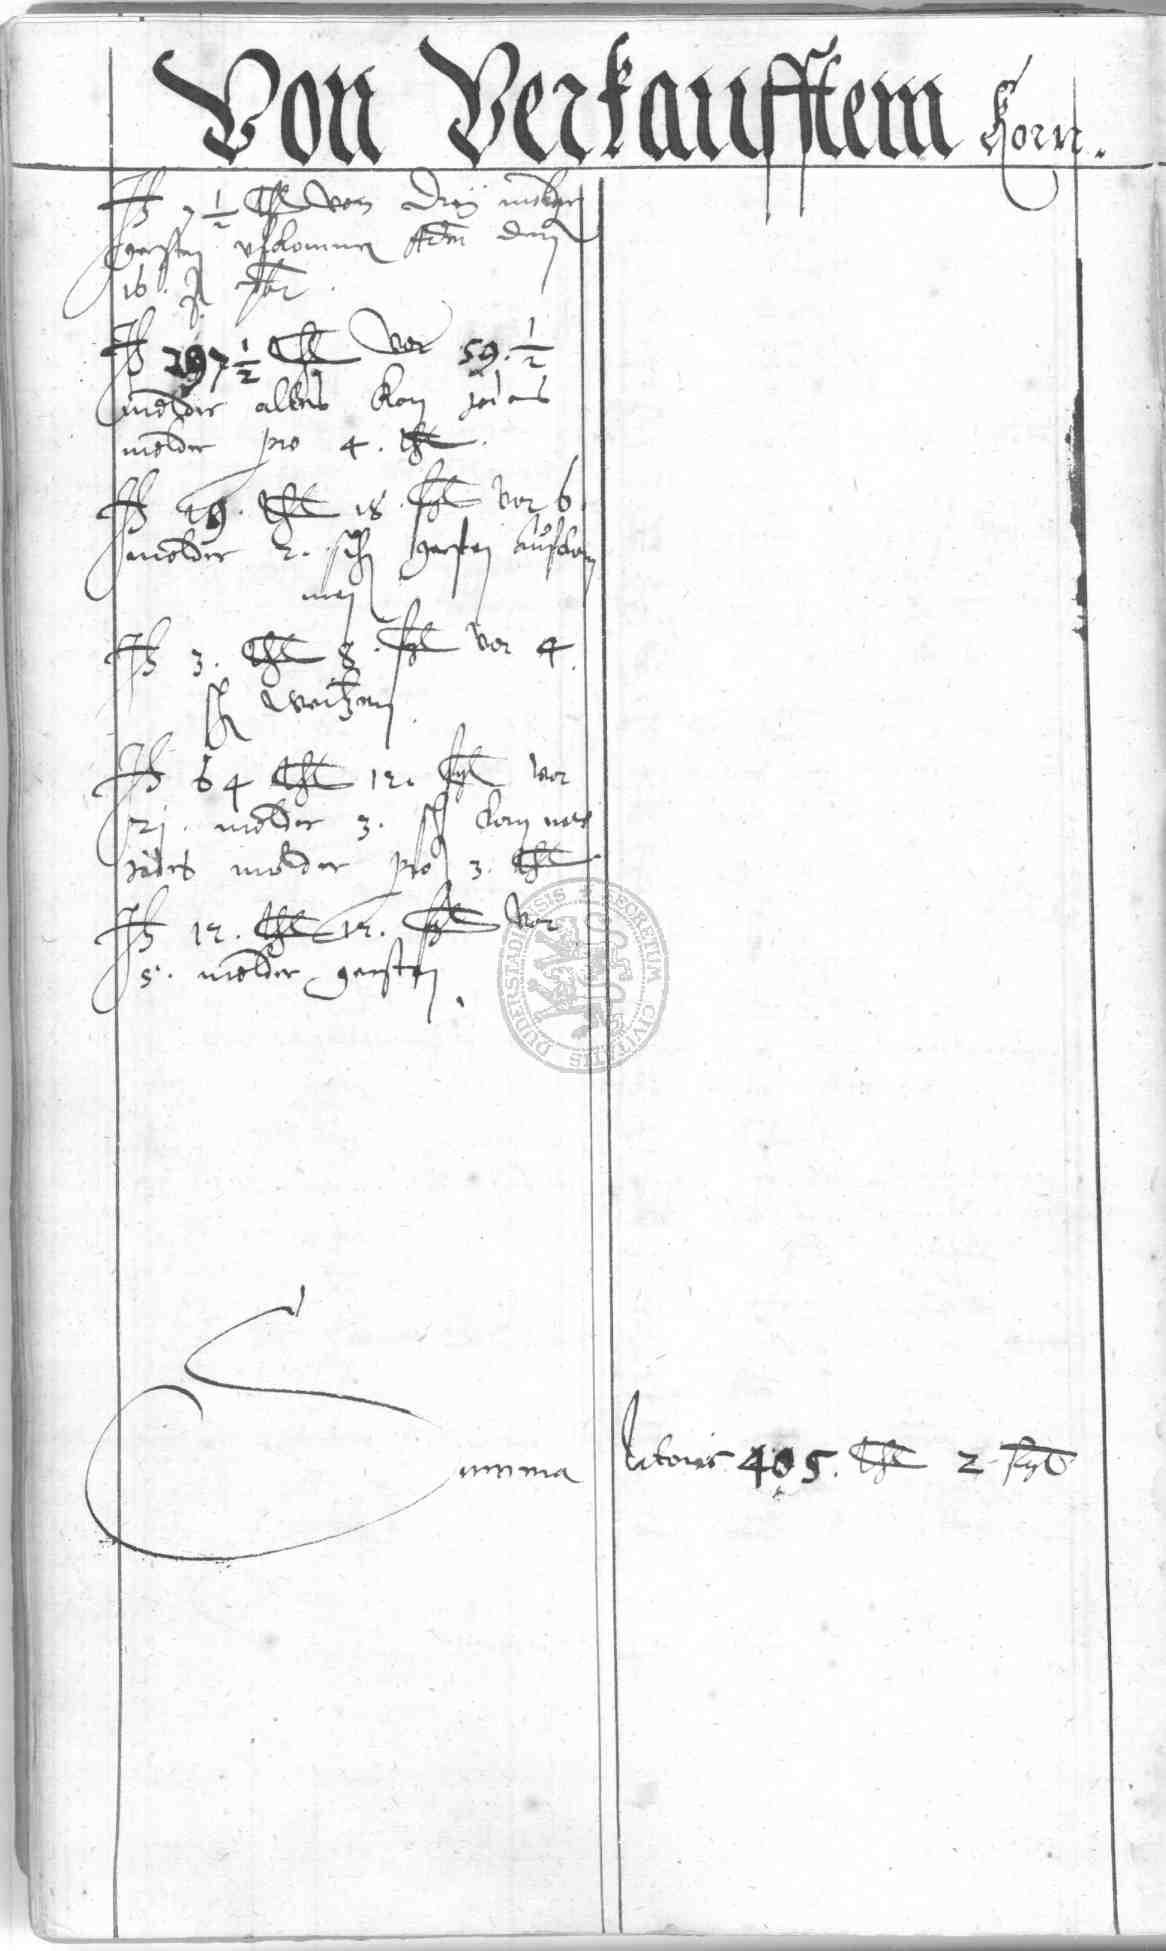 Von Verkaufftem Korn.
It 7 1/2 thl von drey molder
gersten ufkommen Adm den
16. Apr
It 297 1/2 thl vor 59. 1/2
molder altes korn jedes
molder pro 4. thl.
It 19. thl 18. ßgl vor 6.
molder 2. sch gersten aufkom
men
It 3. thl 8. ßgl vor 4.
sch weitzen
It 64 thl 12. ßgl vor
21. molder 3. sch korn
jedes molder pro 3. thl
It 12. thl 12. ßgl vor
5. molder gersten.
Summa latoris 405. thl 2 ßgl
SECRETUM CIVITATIS DUDERSTADIENSIS